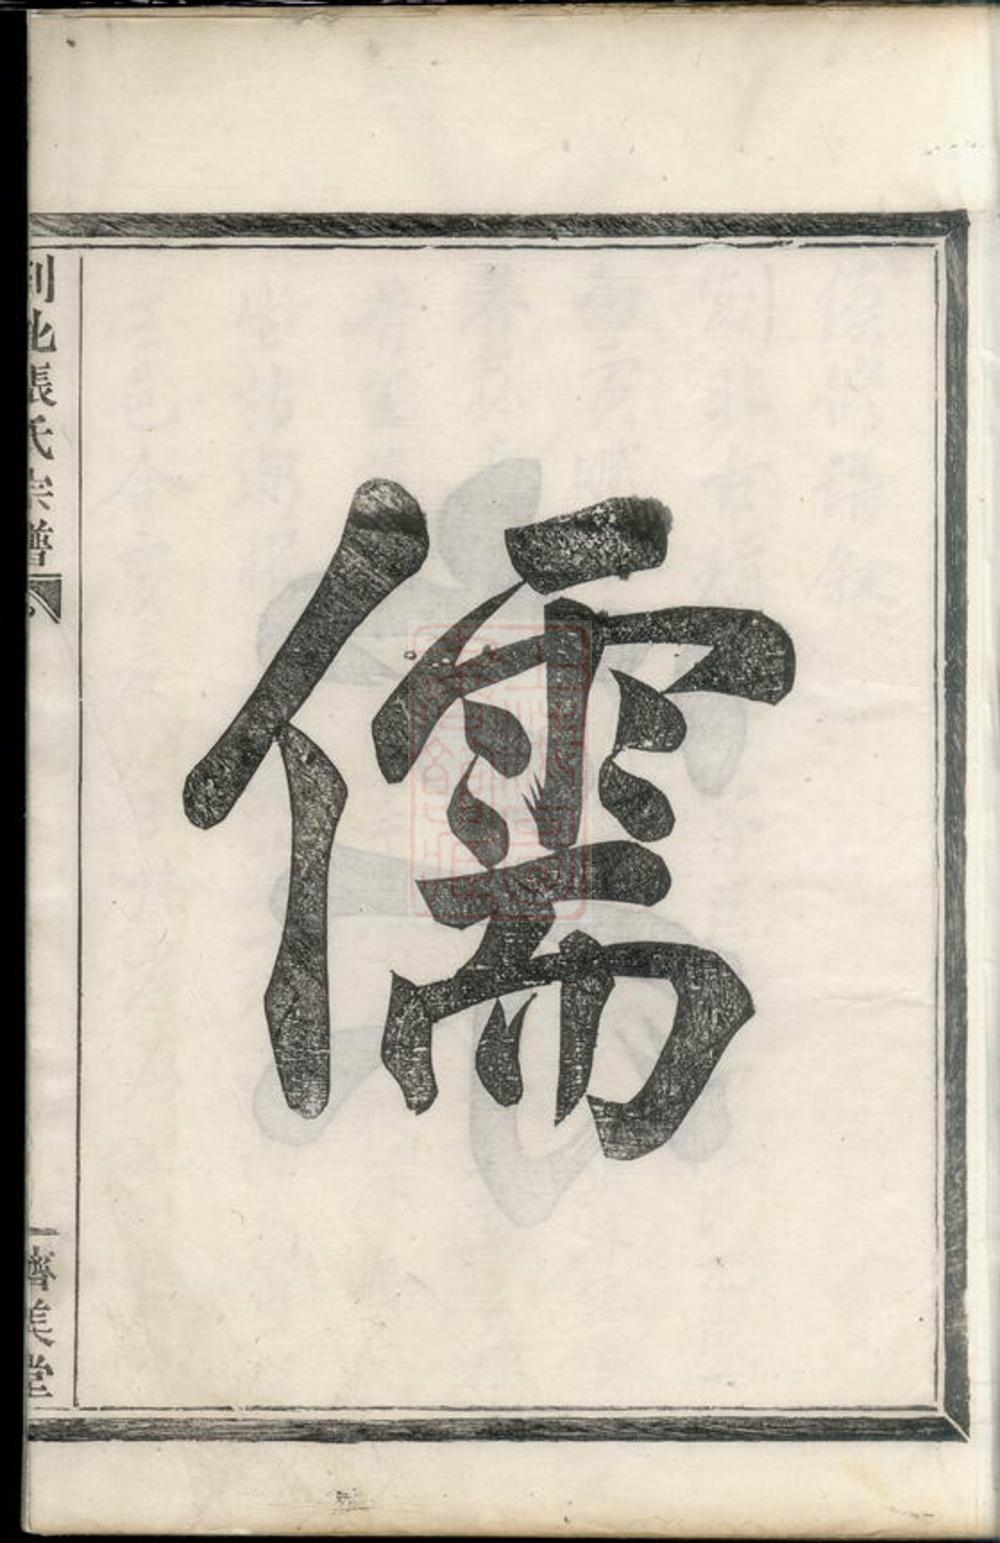 儒
北張氏宗譜
一
濟美堂